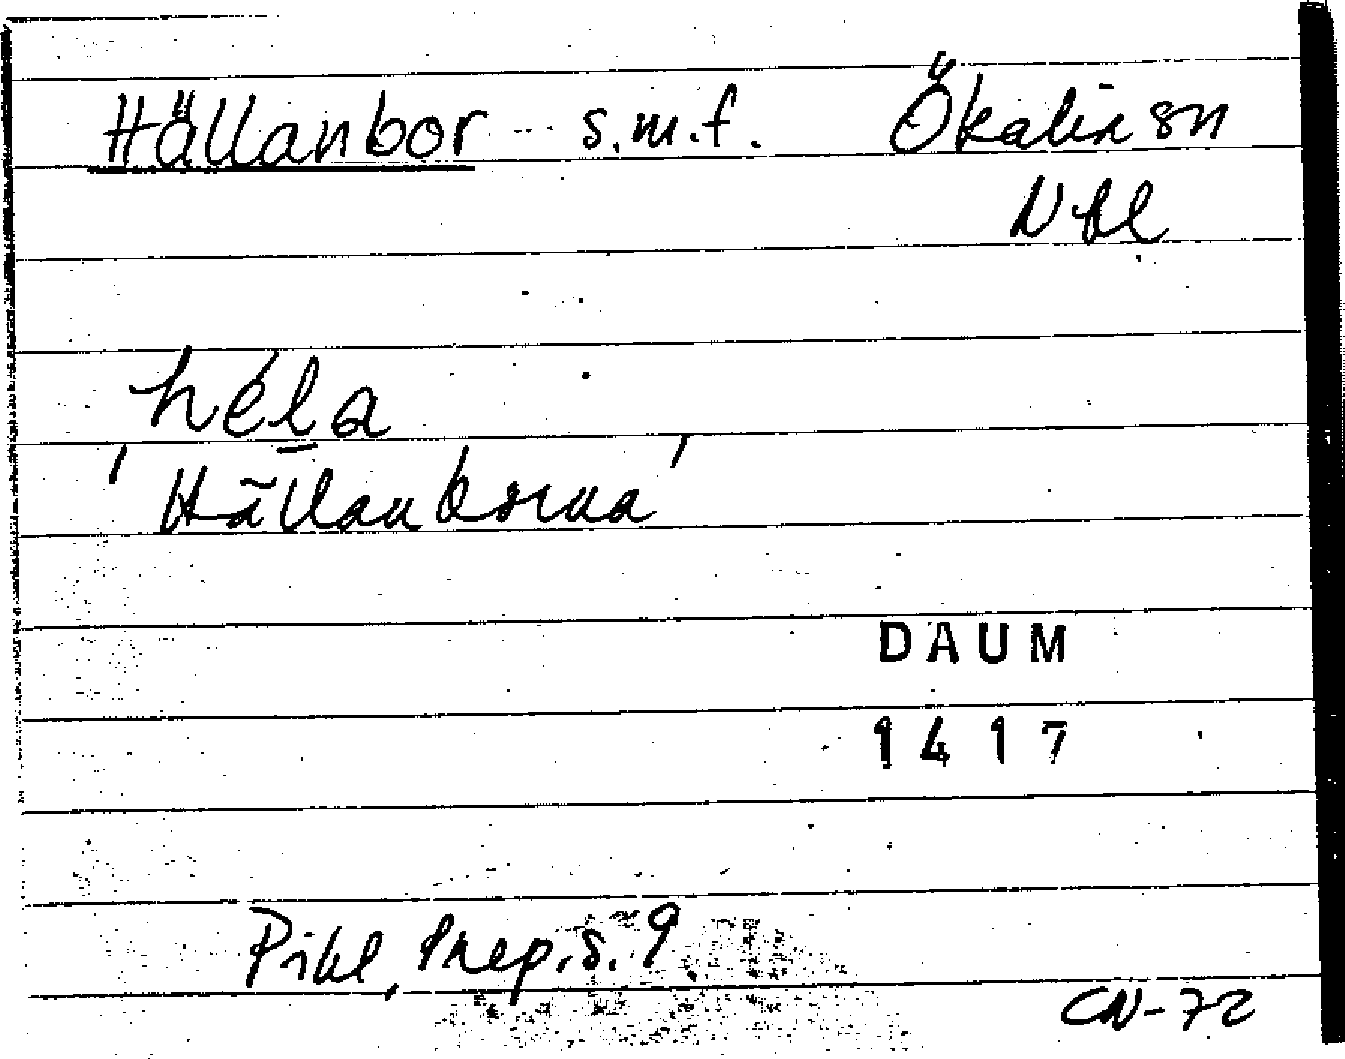 Hällanbor s.m.f. Ökalix sn
Nbl
héḻa
'Hällanborna'
DAUM
1417
Pihl, Prep. s. 9
CN-72